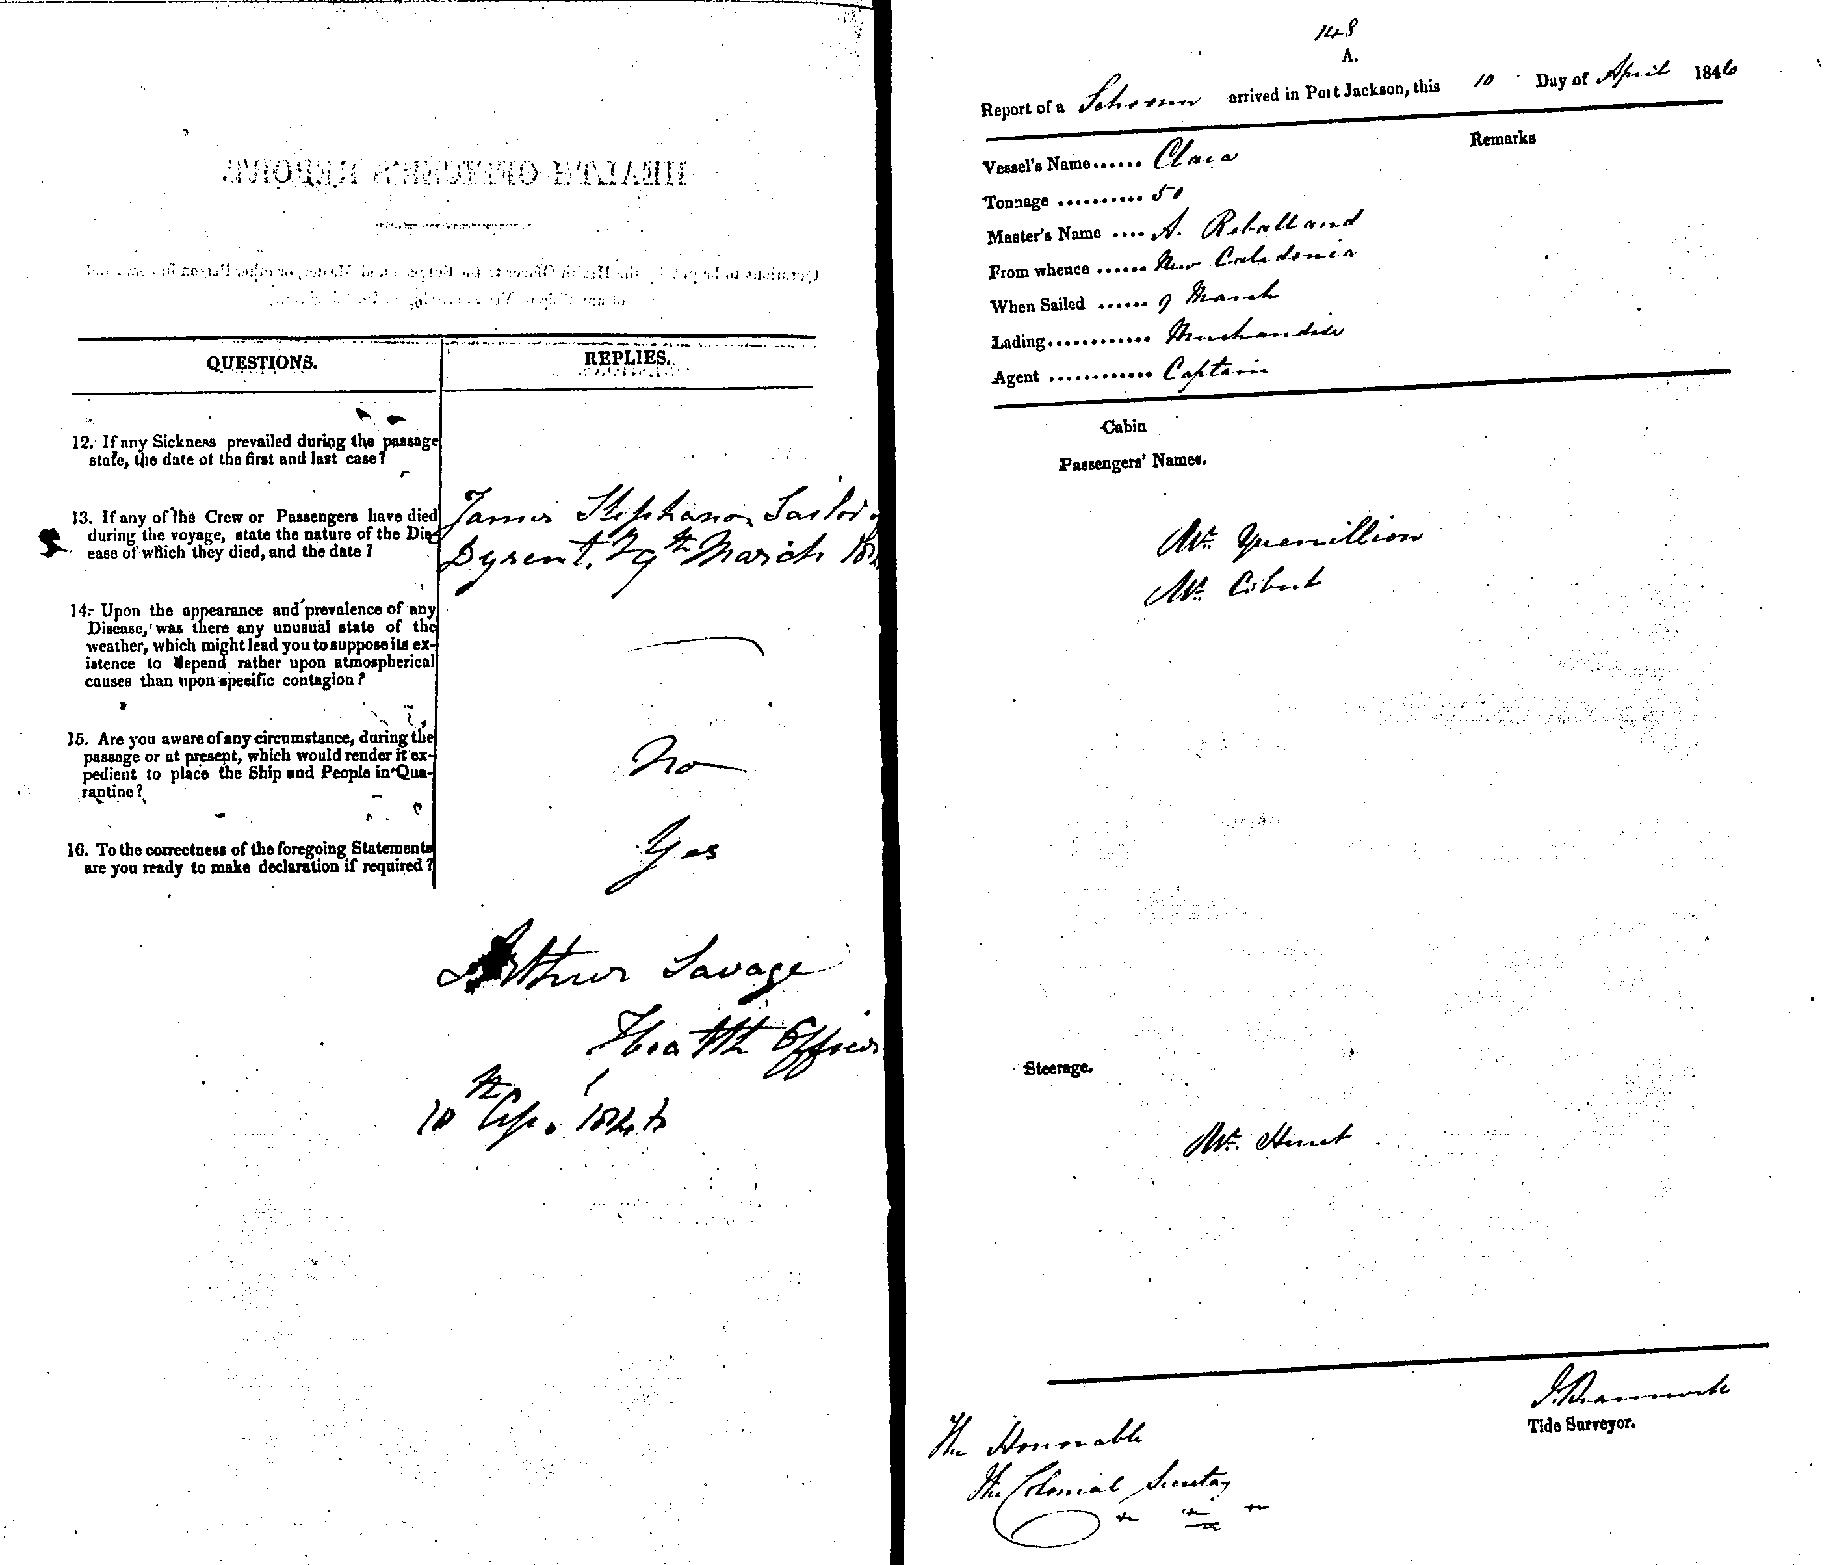 QUESTIONS.
REPLIES.
12. If any Sickness prevailed during the passage
state, the date of the first and last case?
13. If any of the Crew or Passengers have died
during the voyage, state the nature of the Dis-
ease of which they died, and the date?
James Stephanson Sailor
Dysent. 29th March 184
14. Upon the appearance and prevalence of any
Disease, was there any unusual state of the
weather, which might lead you to suppose its ex-
istence to depend rather upon atmospherical
causes than upon specific contagion?
15. Are you aware of any circumstance, during the
passage or at present, which would render it ex-
pedient to place the Ship and People in Qua-
rantine?
No
16. To the correctness of the foregoing Statements
are you ready to make declaration if required?
Yes
Arthur Savage
Health Officer
10th Ap. 1846
148
A.
Report of a Schooner arrived in Port Jackson, this 10 Day of April 1846
Remarks
Vessel's Name...... Clara
Tonnage .......... 50
Master's Name .... A.
From whence ...... New Caledonia
When Sailed ...... 9 March
Lading............ Merchandise
Agent ............ Captain
Cabin
Passengers' Names.
Mr.
Mr.
Steerage.
Mr.
Tide Surveyor.
The Honorable
The Colonial Secretary